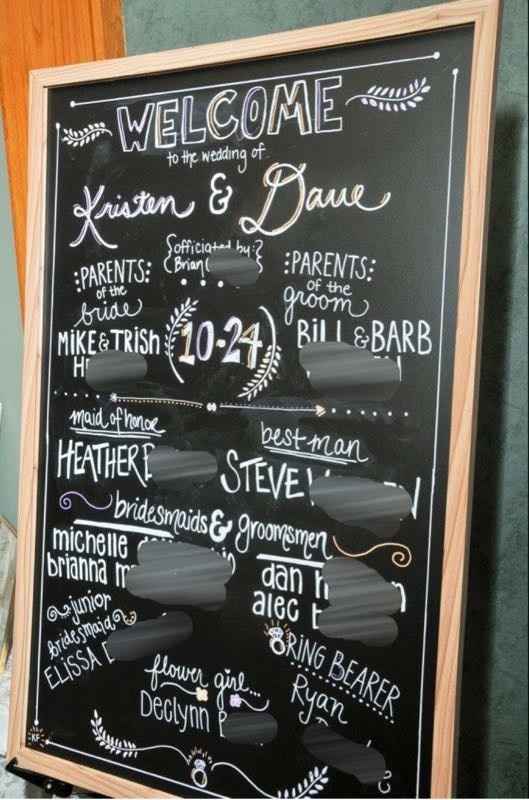 WELCOME
to the wedding of
Kristen & Dave
{officiated by:}
Brian
:PARENTS:
of the
bride
MIKE & TRISH
H
10-24
:PARENTS:
of the
groom
BILL & BARB
maid of honor
HEATHER
best man
STEVE
bridesmaids & groomsmen
michelle
brianna m
dan
alec
junior
bridesmaid
ELISSA
flower girl...
Declynn
RING BEARER
Ryan
KF